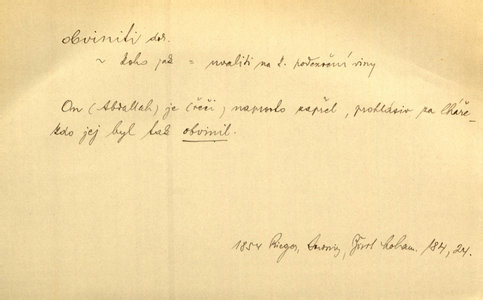 obviniti dok.
~ koho jak = uvaliti na k. podezření viny
On (Abdallah) je (řeči) naprosto zapřel, prohlásiv za lháře
kdo jej byl tak obvinil.
1854 Rieger, Živ. Moham. 184, 24.